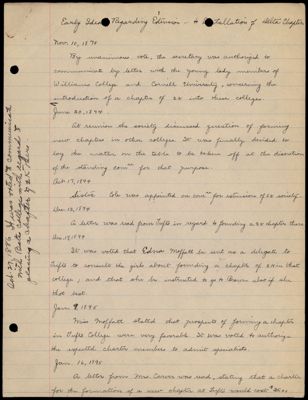 Early Ideas Regarding Extension - & Installation of Delta Chapter
Nov. 10, 1890
By unanimous vote, the secretary was authorized to
communicate by letter with the young lady members of
Williams College and Cornell University, concerning the
introduction of a chapter of ΣΚ into these colleges.
June 20, 1894
At reunion the society discussed question of forming
new chapters in other colleges. It was finally decided to
lay the matter on the table to be taken off at the discretion
of the standing com for that purpose.
Oct. 17, 1894
Sister Cole was appointed on com for extension of ΣΚ society.
Dec. 12, 1894
A letter was read from Tufts in regard to founding a ΣΚ chapter there.
Dec. 19, 1894
It was voted that Edna Moffatt be sent as a delegate to
Tufts to consult the girls about founding a chapter of ΣΚ in that
college; and that she be instructed to go to also if she
thot best.
Jan. 9, 1895
Miss Moffatt stated that prospects of forming a chapter
in Tufts College were very favorable. It was voted to authorize
the expected charter members to admit specialists.
Jan. 16, 1895
A letter from Mrs. Carver was read, stating that a charter
for the formation of a new chapter at Tufts would cost
Oct. 27, 1886 It was voted to communicate
with Bates College with regard to
placing a chapter of ΣΚ there